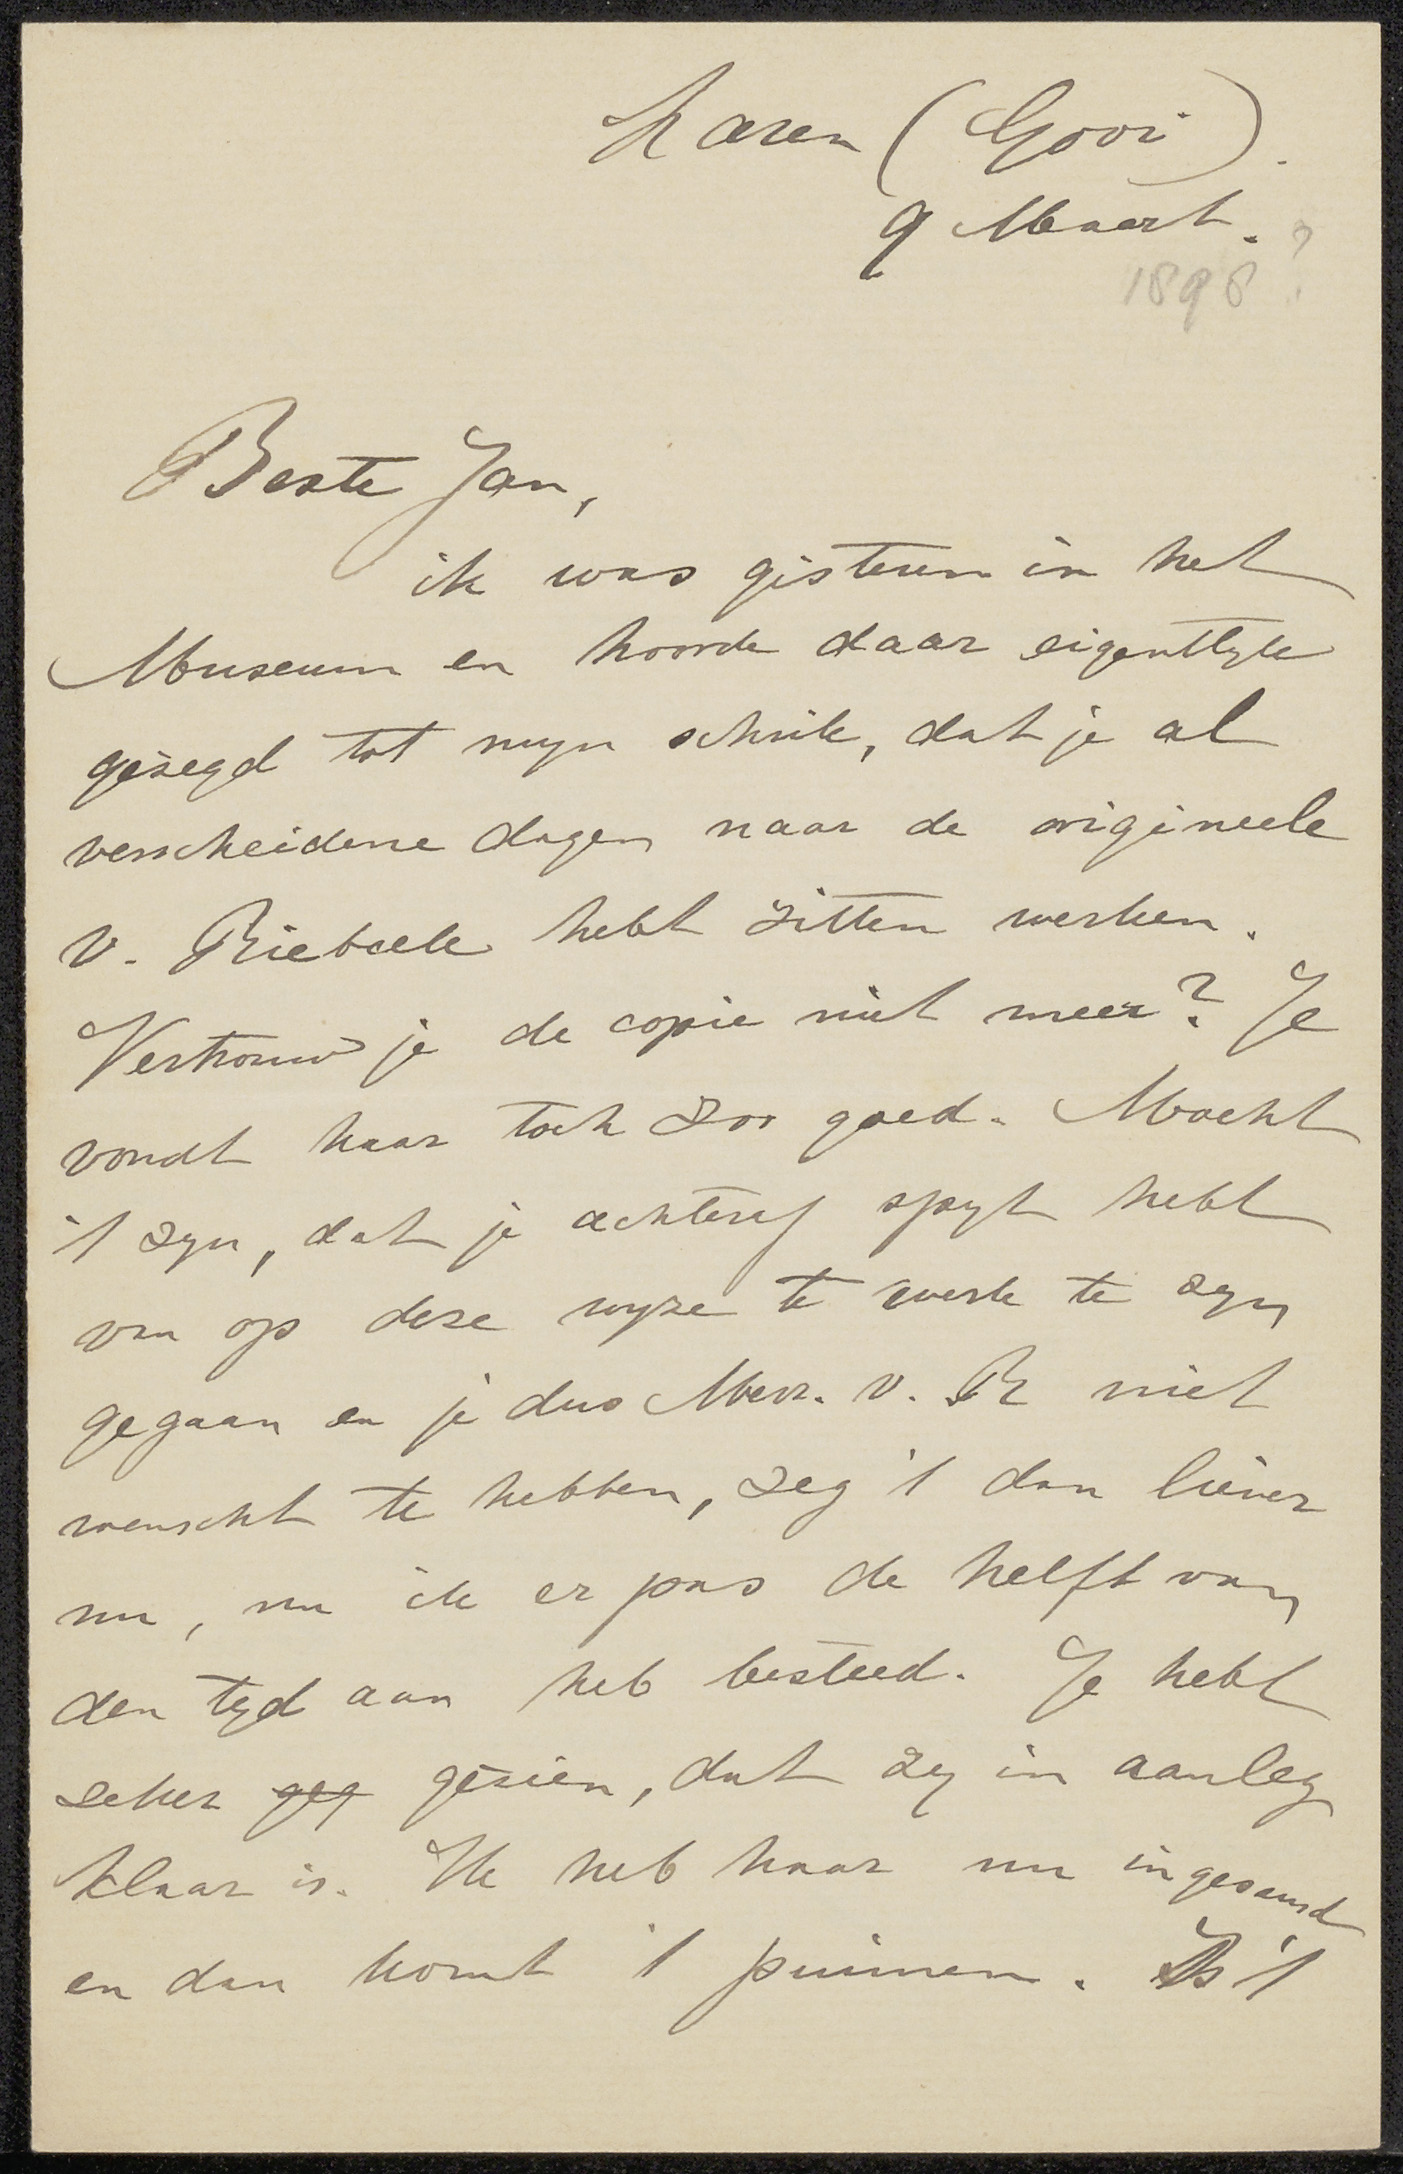 Laren (Gooi).
9 Maart.
1898?
Beste Jan,
ik was gisteren in het
Museum en hoorde daar eigentlyk
gezegd tot myn schrik, dat je al
verscheidene dagen naar de origineele
v. Riebeek hebt zitten werken.
Vertrouw je de copie niet meer? Je
vondt haar toch zoo goed. Mocht
't zyn, dat je achteraf spyt hebt
van op deze wyze te werk te zyn
gegaan en je dus Mevr. v. R niet
wenscht te hebben, zeg 't dan liever
nu, nu ik er pas de helft van
den tyd aan heb besteed. Je hebt
zeker geg gezien, dat zy in aanleg
klaar is. Ik heb haar nu ingesmeerd
en dan komt 't puimen. Is 't